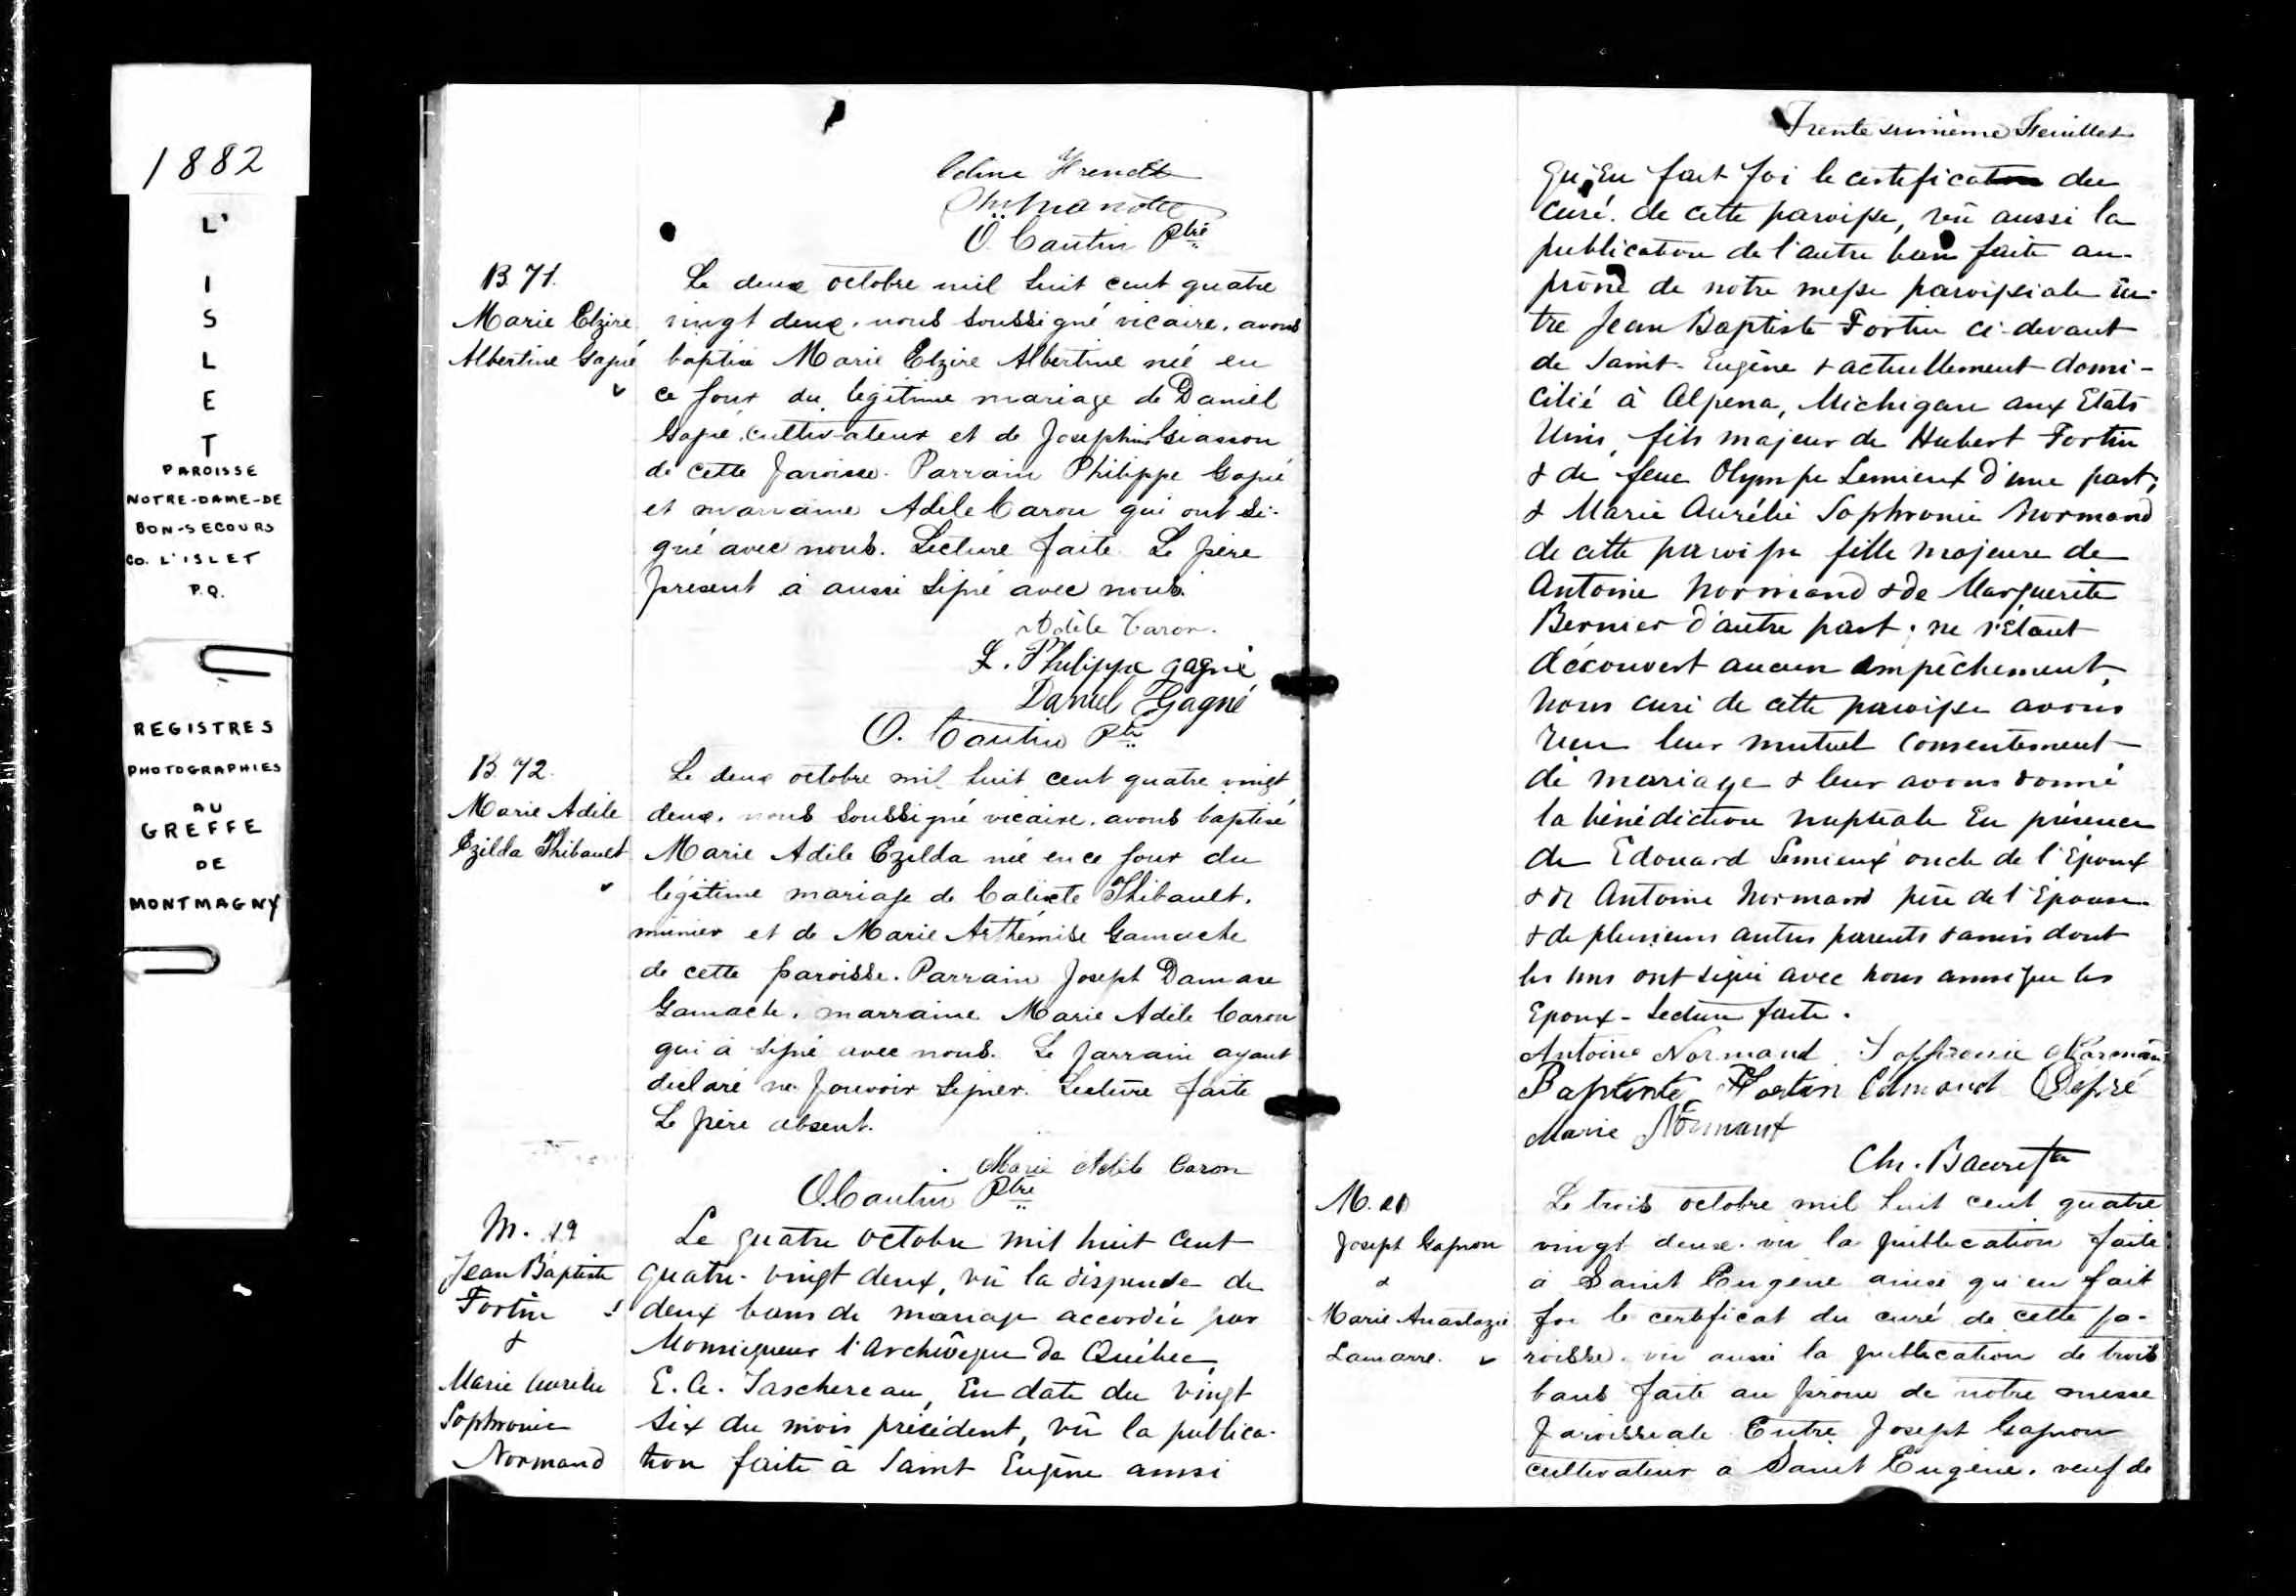 1882
L'
I
S
L
E
T
PAROISSE
NOTRE-DAME-DE
BON-SECOURS
CO. L'ISLET
P.Q.
REGISTRES
PHOTOGRAPHIES
AU
GREFFE
DE
MONTMAGNY
O. Cantin Ptre
B 71.
Marie Elzire
Albertine Gagné
Le deux octobre mil huit cent quatre
vingt deux. nous soussigné vicaire. avons
baptisé Marie Elzire Albertine née en
ce jour du légitime mariage de Daniel
Gagné cultivateur et de Josephine Giasson
de cette paroisse. Parrain Philippe Gagné
et marraine Adèle Caron qui ont si-
gné avec nous. Lecture faite. Le père
présent a aussi signé avec nous.
Adèle Caron.
L. Philippe gagné
Daniel Gagné
O. Cantin Ptre
B. 72.
Marie Adèle
Ezilda Thibault
Le deux octobre mil huit cent quatre vingt
deux. nous soussigné vicaire. avons baptisé
Marie Adèle Ezilda née en ce jour du
légitime mariage de Calixte Thibault.
meunier et de Marie Arthémise Gamache
de cette paroisse. Parrain Joseph Damase
Gamache. marraine Marie Adèle Caron
qui a signé avec nous. Le parrain ayant
déclaré ne pouvoir signer. Lecture faite
Le père absent.
Marie Adèle Caron
O. Cantin Ptre
M. 19
Jean Baptiste
Fortin
&
Marie Aurélie
Sophronie
Normand
Le quatre octobre mil huit cent
quatre-vingt deux, vû la dispense de
deux bans de mariage accordée par
Monseigneur l'Archevêque de Québec,
E. A. Taschereau, En date du vingt
six du mois précédent, vû la publica-
tion faite à Saint Eugène ainsi
Feuillet
qu'en fait foi le certificat du
curé de cette paroisse, vû aussi la
publication de l'autre ban faite au
prône de notre messe paroissiale en-
tre Jean Baptiste Fortin ci-devant
de Saint-Eugène & actuellement domi-
cilié à Alpena, Michigan aux Etats
Unis, fils majeur de Hubert Fortin
& de feue Olympe Lemieux d'une part;
& Marie Aurélie Sophronie Normand
de cette paroisse fille majeure de
Antoine Normand & de Marguerite
Bernier d'autre part; ne s'étant
découvert aucun empêchement,
Nous curé de cette paroisse avons
reçu leur mutuel consentement
de mariage & leur avons donné
la bénédiction nuptiale En présence
de Edouard Lemieux oncle de l'Epoux
& de Antoine Normand père de l'Epouse
& de plusieurs autres parents & amis dont
les uns ont signé avec nous ainsi que les
Epoux - Lecture faite.
Antoine Normand Sophronie Norman
Baptiste Fortin Edmond
Marie Normant
M. 20
Joseph Gagnon
&
Marie Anastazie
Lamarre.
Le trois octobre mil huit cent quatre
vingt deux. vu la publication faite
à Saint Eugène ainsi qu'en fait
foi le certificat du curé de cette pa-
roisse. vu aussi la publication de trois
bans faite au prône de notre messe
paroissiale Entre Joseph Gagnon
cultivateur à Saint Eugène. veuf de